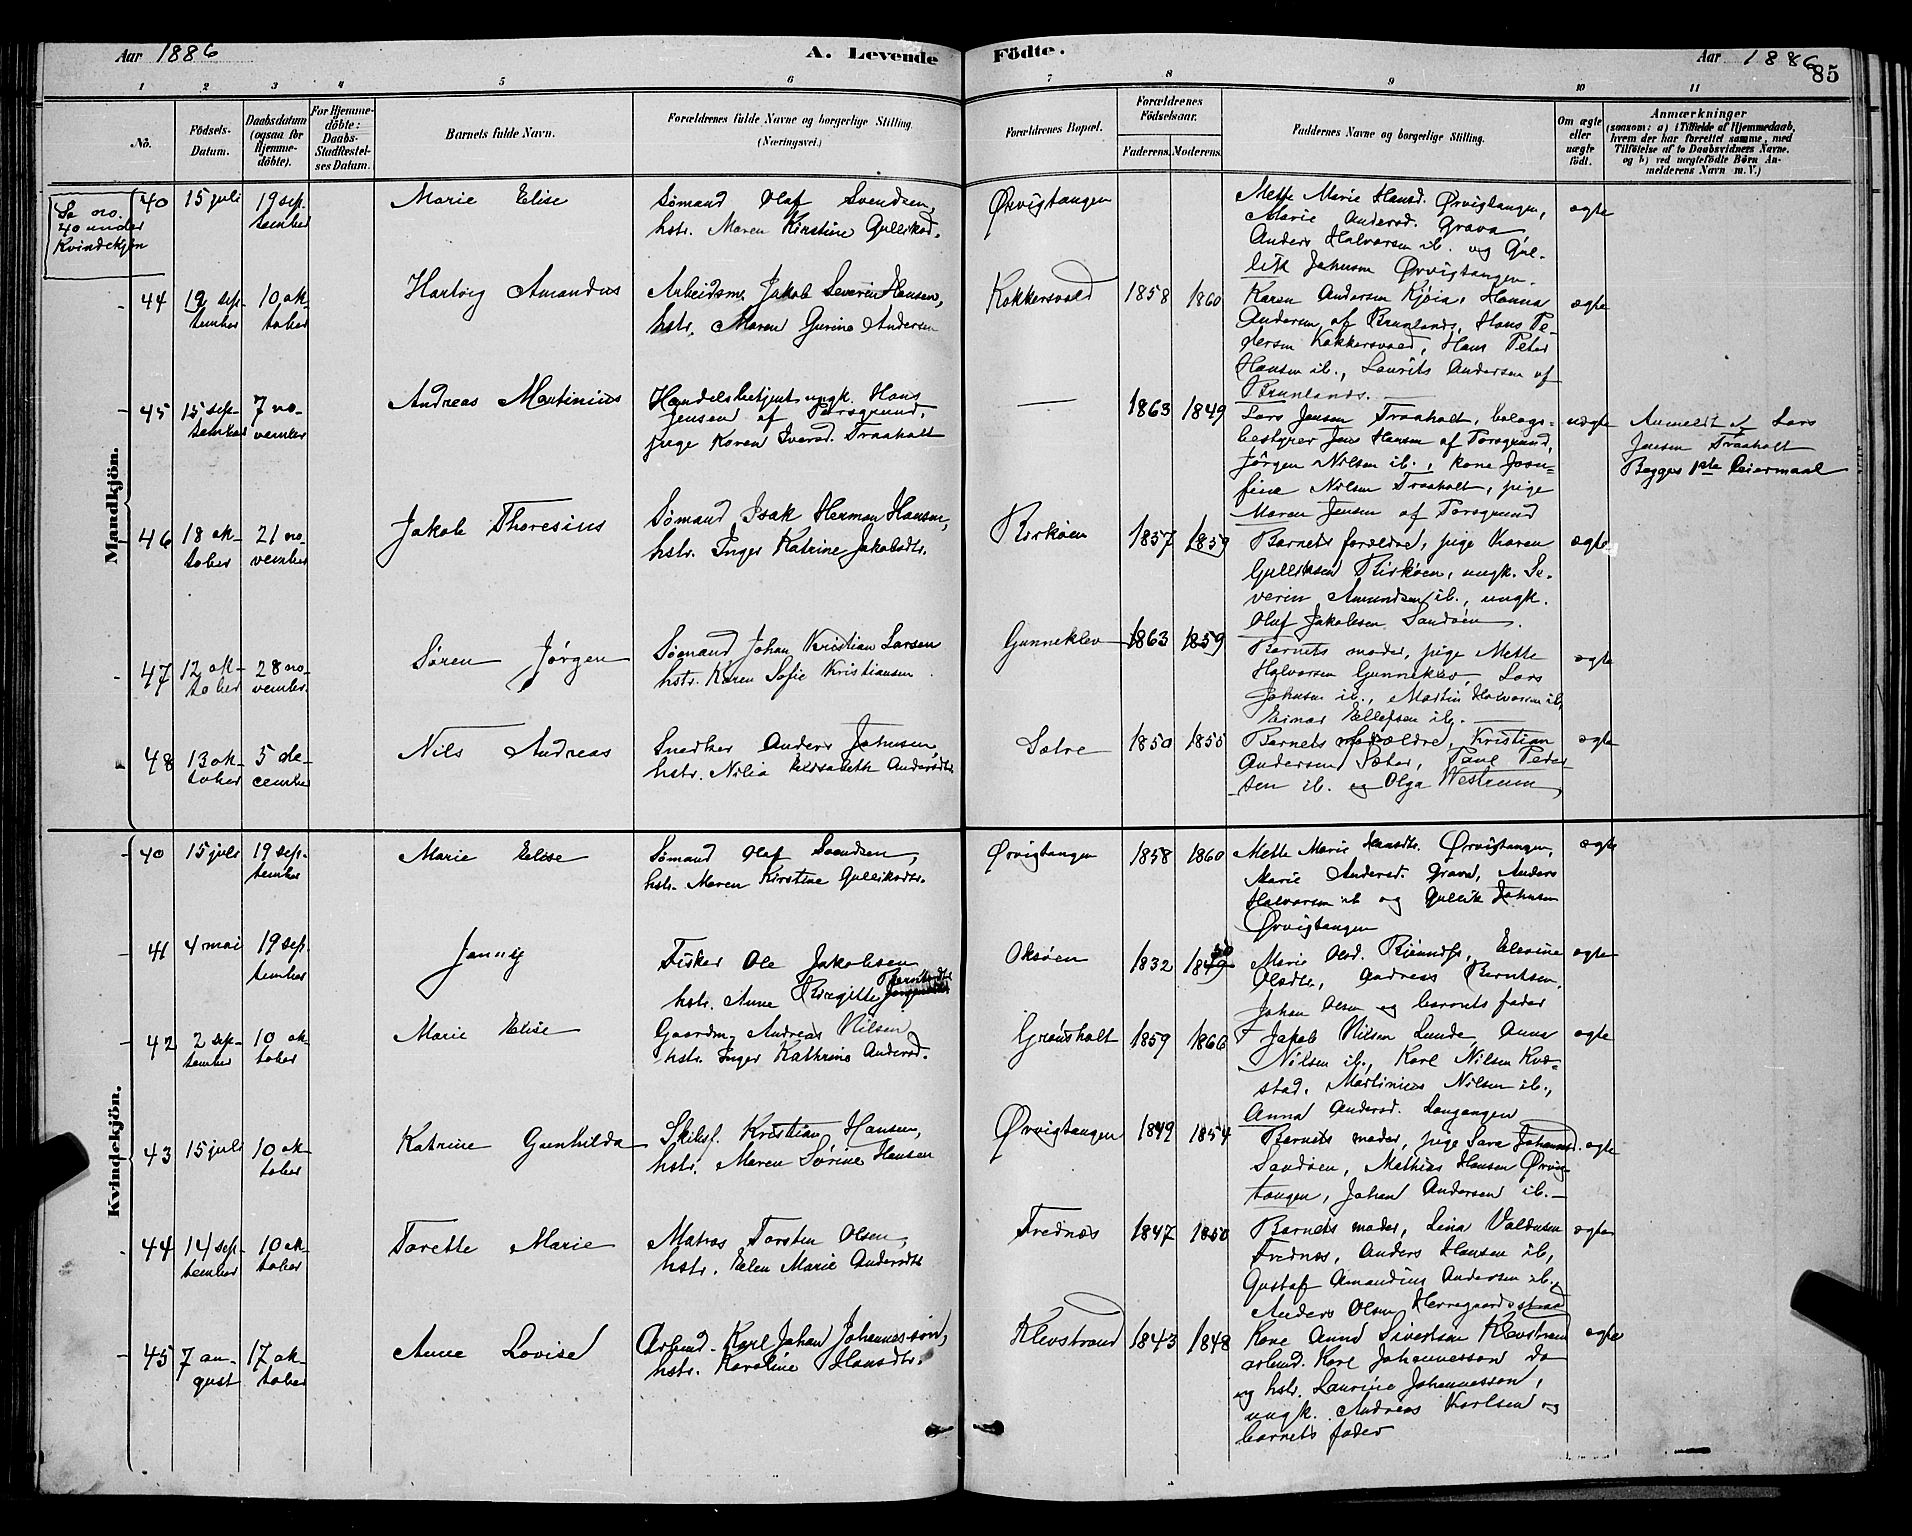 Aar 1886
A. Levende Födte.
Aar 1886
85
1 2 3 4 5 6 7 8 9 10 11
No.
Födsels-Datum.
Daabsdatum (ogsaa for Hjemmedöbte).
For Hjemmedöbte: Daabs-Stadfæstelses Datum.
Barnets fulde Navn.
Forældrenes fulde Navne og borgerlige Stilling. (Næringsvei.)
Forældrenes Bopæl.
Forældrenes Födselsaar.
Faderens. Moderens.
Faddernes Navne og borgerlige Stilling.
Om ægte eller uægte födt.
Anmærkninger
(saasom: a) i Tilfælde af Hjemmedaab,
hvem der har forrettet samme, med
Tilföielse af to Daabsvidners Navne.
og b) ved uægtefödte Börn An-
melderens Navn m. V.)
Mandkjön.
Se no.
40 under
Kvindekjøn
40 15 juli 19 september Marie Elise
Sømand Olaf Svendsen,
hstr. Maren Kirstine Gulliksd.
Ørvigtangen
Mette Marie Hansd. Ørvigtangen,
Marie Andersd. Grava,
Anders Halvorsen ib. og Gul-
lik Johnsen Ørvigtangen.
ægte
44 19 september 10 oktober Hartvig Amandus
Arbeidsm. Jakob Severin Hansen,
hstr. Maren Gurine Andersen
Kokkersvold 1858 1860
Karen Andersen Kjøia, Hanna
Andersen af Brunlands, Hans Pe-
dersen Kokkersvold, Hans Peter
Hansen ib., Laurits Andersen af
Brunlands.
ægte
45 15 september 7 november Andreas Martinius
Handelsbetjent ungk. Hans
Jensen af Porsgrund,
pige Karen Iversd. Traaholt
— 1863 1849
Lars Jensen Traaholt, bolags-
bestyrer Jens Hansen af Porsgrund,
Jørgen Nilsen ib., kone Jose-
fine Nilsen Traaholt, pige
Maren Jensen af Porsgrund
uægte
Anmeldt af Lars
Jensen Traaholt
Begges 1ste leiermaal
46 18 oktober 21 november Jakob Thoresius
Sømand Isak Herman Hansen,
hstr. Inger Katrine Jakobsdtr.
Birkøen 1857 1859
Barnets forældre, pige Karen
Gulliksen Birkøen, ungk. Se-
verin Amundsen ib., ungk.
Oluf Jakobsen Sandøen.
ægte
47 12 oktober 28 november Søren Jørgen
Sømand Johan Kristian Larsen
hstr. Karen Sofie Kristiansen
Gunneklev 1863 1859
Barnets moder, pige Mette
Halvorsen Gunneklev, Lars
Johnsen ib., Martin Halvorsen ib.,
Einar Ellefsen ib.
ægte
48 13 oktober 5 december Nils Andreas
Snedker Anders Johnsen,
hstr. Nilia Elisabeth Andersdtr.
Sætre 1850 1855
Barnets forældre, Kristian
Andersen Sæter, Paul Peder-
sen ib. og Olga Westrum,
ægte
Kvindekjön.
40 15 juli 19 september Marie Elise
Sømand Olaf Svendsen,
hstr. Maren Kirstine Gulliksdtr.
Ørvigtangen 1858 1860
Mette Marie Hansdtr. Ørvigtangen,
Marie Andersd. Grava, Anders
Halvorsen ib og Gullik Johnsen
Ørvigtangen
ægte
41 4 mai 19 september Janny
Fisker Ole Jakobsen
hstr. Anne Birgitte Berntsdtr
Oksøen 1832 1850
Marie Olsd. Elevine
Olsdtr., Andreas Berntsen,
Johan Olsen og barnets fader
ægte
42 2 september 10 oktober Marie Elise
Gaardm. Andreas Nilsen
hstr. Inger Kathrine Andersd.
Grønsholt 1859 1866
Jakob Nilsen Lunde, Anna
Nilsen ib., Karl Nilsen Kvæ-
stad, Martinius Nilsen ib.,
Anna Andersd. Langangen
ægte
43 15 juli 10 oktober Katrine Gunhilda
Skibsf. Kristian Hansen,
hstr. Maren Sørine Hansen
Ørvigtangen 1849 1854
Barnets moder, pige Sara Johannsd.
Sandøen, Mathias Hansen Ørvig-
tangen, Johan Andersen ib.
ægte
44 14 september 10 oktober Torette Marie
Matros Torsten Olsen,
hstr. Elen Marie Andersdtr
Frednæs 1847 1850
Barnets moder, Lina Valdusen
Frednæs, Anders Hansen ib,
Gustaf Amandius Andersen ib.
Anders Olsen Herregaardsstrad
ægte
45 7 august 17 oktober Anne Lovise
Arbmd. Karl Johan Johannesson,
hstr. Karoline Hansdtr.
Klevstrand 1843 1848
Kone Anna Sivertsen Klevstrand
arbmd. Karl Johannesson do
og hstr. Laurine Johannesson,
ungk. Andreas Karlsen og
barnets fader
ægte